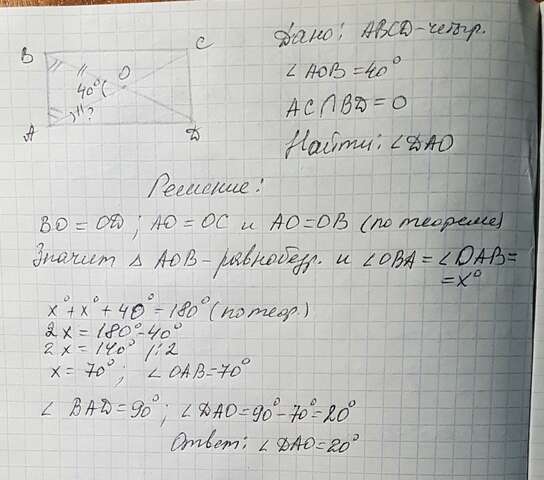 B C
O
40°
?
A D
Дано: ABCD-четыр.
∠AOB=40°
AC∩BD=O
Найти: ∠DAO
Решение:
BO=OD; AO=OC и AO=OB (по теореме)
Значит △ AOB-равнобедр. и ∠OBA=∠OAB=
=x°
x°+x°+40°=180° (по теор.)
2x=180°-40°
2x=140° |:2
x=70°; ∠OAB=70°
∠ BAD=90°; ∠DAO=90°-70°=20°
Ответ: ∠DAO=20°